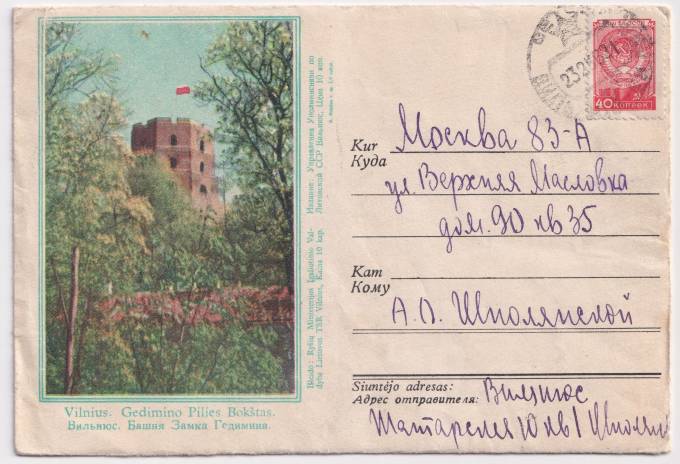 40 КОПЕЕК
Kur
Куда
Москва 83-А
ул. Верхняя Масловка
дом. 90 кв 35
Kam
Кому
А. П. Шполянской
Siuntėjo adresas:
Адрес отправителя:
Вильнюс
Татарская 10 кв 1
Vilnius. Gedimino Pilies Bokštas.
Вильнюс. Башня Замка Гедимина.
Išleido: Ryšių Ministerijos Leidinimo Val-
dyba Lietuvos TSR Vilnius, Kaina 10 kap.
Издание: Управления Уполминсвязи по
Литовской ССР Вильнюс, Цена 10 коп.